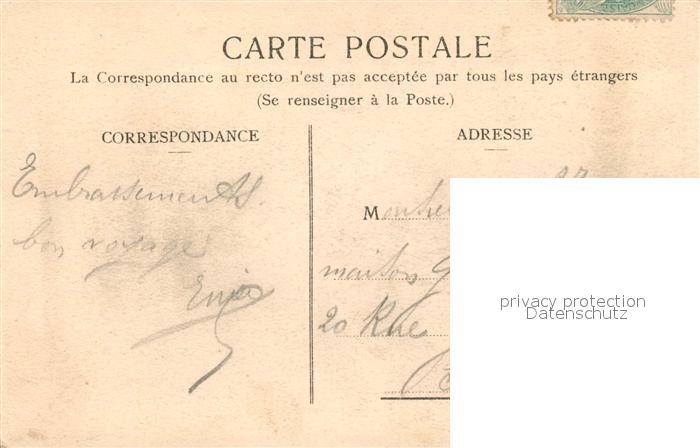 CARTE POSTALE
La Correspondance au recto n'est pas acceptée par tous les pays étrangers
(Se renseigner à la Poste.)
CORRESPONDANCE
Embrassements.
bon voyage
ADRESSE
maison
20 Rue
privacy protection
Datenschutz